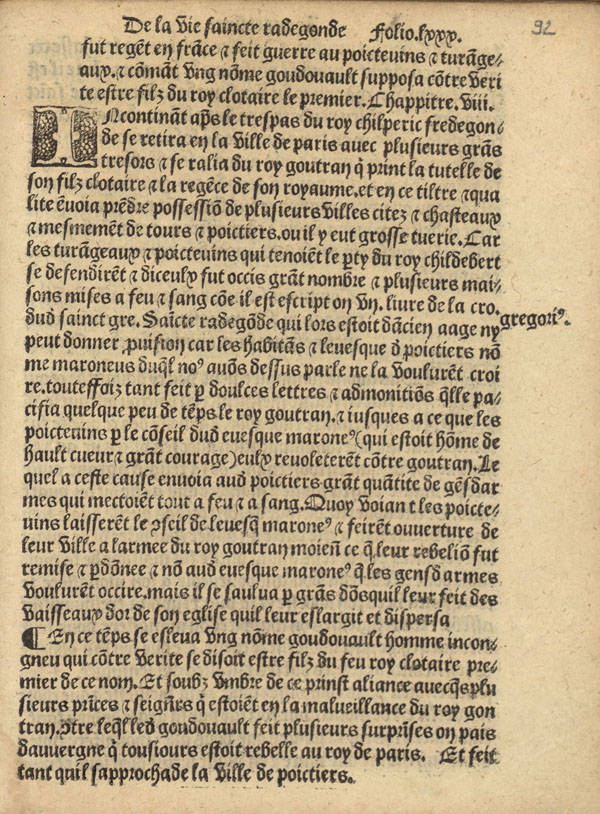 De la vie saincte radegonde Folio.lxxx.
92
fut regēt en frāce ⁊ feit guerre au poicteuins ⁊ turāge-
aux.⁊ cōmāt vng nōme goudouault supposa cōtre veri
te estre filz du roy clotaire le premier.Chappitre.viii.
INcontināt aps̄ le trespas du roy chilperic fredegon-
de se retira en la ville de paris auec plusieurs grās
tresors ⁊ se ralia du roy goutran q̄ print la tutelle de
son filz clotaire ⁊ la regēce de son royaume.et en ce tiltre ⁊ qua
lite ēuoia prēdre possessiō de plusieurs villes citez ⁊ chasteaux
⁊ mesmemēt de tours ⁊ poictiers.ou il y eut grosse tuerie.Car
les turāgeaux ⁊ poicteuins qui tenoiēt le ꝑty du roy childebert
se defendirēt ⁊ diceulx fut occis grāt nombre ⁊ plusieurs mai-
sons mises a feu ⁊ sang cōe il est escript on vii. liure de la cro.
dud sainct gre. Saīcte radegōde qui lors estoit dācien aage ny
gregoriꝰ.
peut donner ꝓuision car les habitās ⁊ leuesque d̄ poictiers nō
me maroneus duq̄l noꝰ auōs dessus parle ne la voulurēt croi
re.touteffoiz tant feit ꝑ doulces lettres ⁊ admonitiōs q̄lle pa-
cifia quelque peu de tēps le roy goutran.⁊ iusques a ce que les
poicteuins ꝑ le cōseil dud euesque maroneꝰ(qui estoit hōme de
hault cueur ⁊ grāt courage)eulx reuoleterēt cōtre goutran.Le
quel a ceste cause enuoia aud poictiers grāt quātite de gēsdar
mes qui mectoiēt tout a feu ⁊ a sang.Quoy voiant les poicte-
uins laisserēt le ꝯseil de leuesq̄ maroneꝰ ⁊ feirēt ouuerture de
leur ville a larmee du roy goutran moiēn̄ ce q̄ leur rebeliō fut
remise ⁊ ꝑdōnee ⁊ nō aud euesque maroneꝰ q̄ les gensd armes
voulurēt occire.mais il se saulua ꝑ grās dōs quil leur feit des
vaisseaux dor de son eglise quil leur eslargit et dispersa
¶ En ce tēps se esleua vng nōme goudouault homme incon-
gneu qui cōtre verite se disoit estre filz du feu roy clotaire pre-
mier de ce nom. Et soubz vmbre de ce prinst aliance auecq̄s plu
sieurs prīces ⁊ seignr̄s q̄ estoiēt en la malueillance du roy gon
tran.ꝯtre leq̄l led goudouault feit plusieurs surprīses on pais
dauuergne q̄ tousiours estoit rebelle au roy de paris. Et feit
tant quil sapprochade la ville de poictiers.